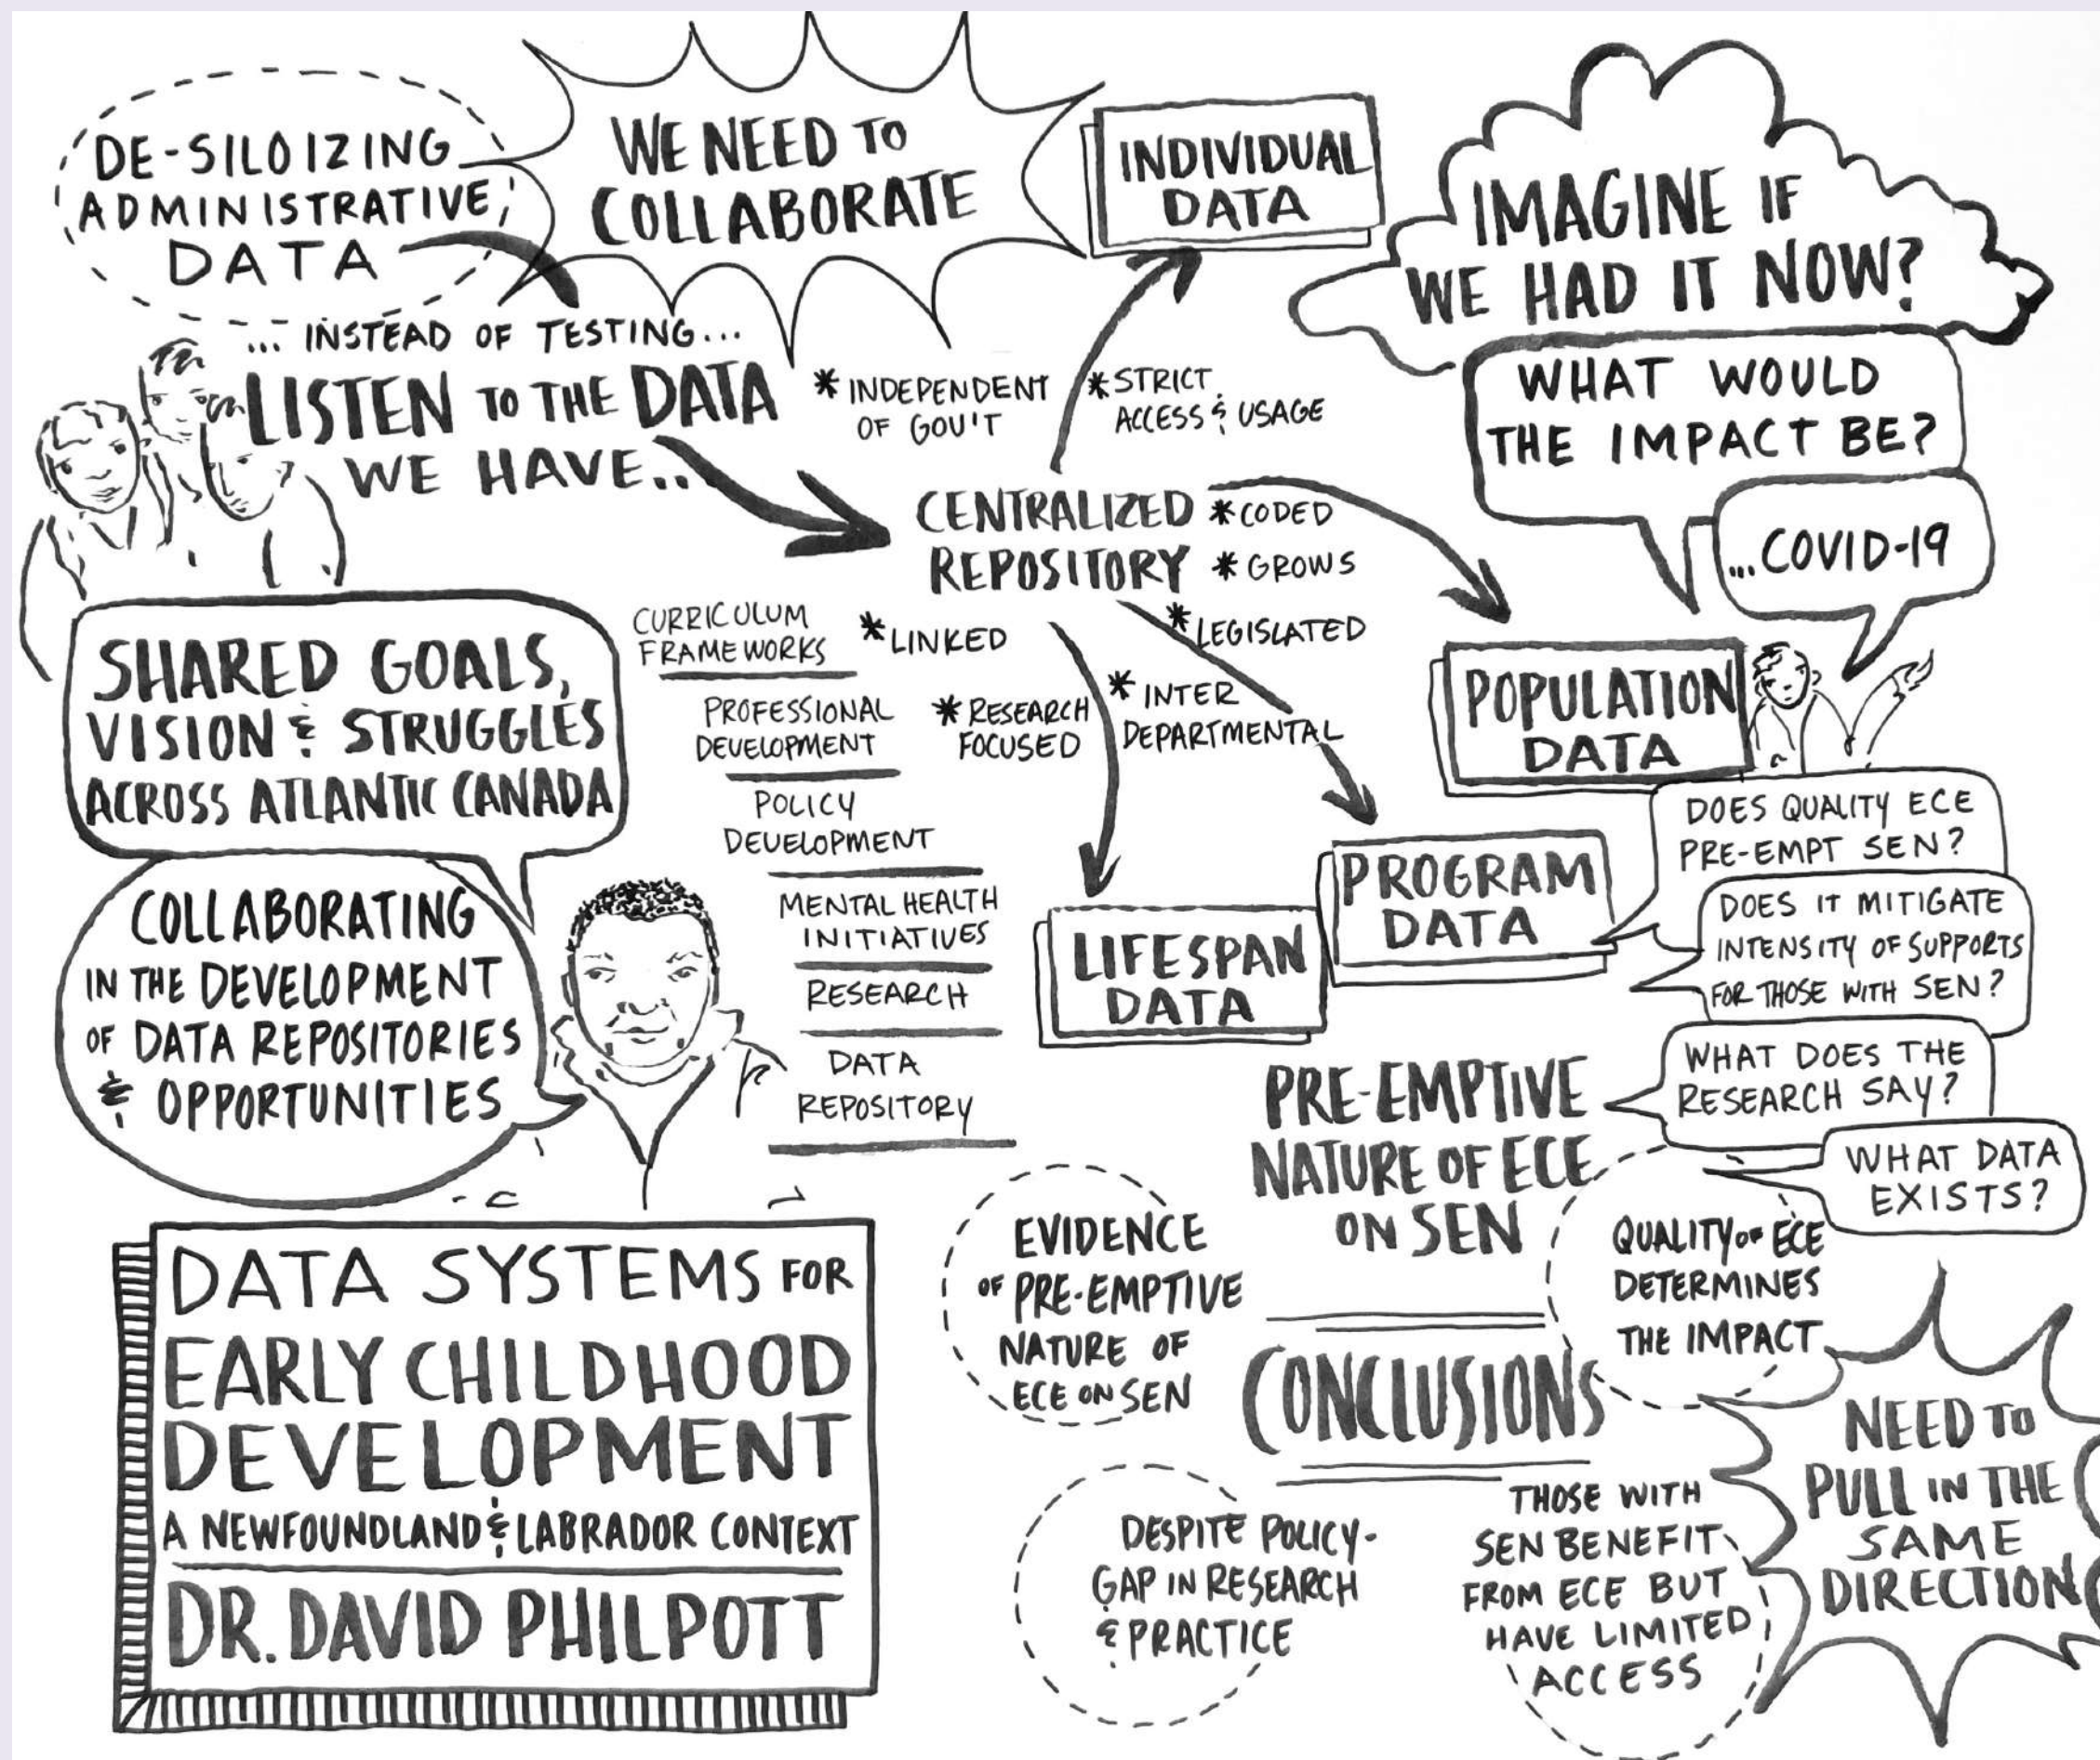 DE-SILOIZING
ADMINISTRATIVE
DATA
WE NEED TO
COLLABORATE
... INSTEAD OF TESTING...
LISTEN TO THE DATA
WE HAVE..
INDIVIDUAL
DATA
IMAGINE IF
WE HAD IT NOW?
WHAT WOULD
THE IMPACT BE?
...COVID-19
* INDEPENDENT
OF GOV'T
* STRICT
ACCESS & USAGE
CENTRALIZED
REPOSITORY
* CODED
* GROWS
* LINKED
* LEGISLATED
* RESEARCH
FOCUSED
* INTER
DEPARTMENTAL
POPULATION
DATA
PROGRAM
DATA
LIFESPAN
DATA
SHARED GOALS,
VISION & STRUGGLES
ACROSS ATLANTIC CANADA
COLLABORATING
IN THE DEVELOPMENT
OF DATA REPOSITORIES
& OPPORTUNITIES
CURRICULUM
FRAMEWORKS
PROFESSIONAL
DEVELOPMENT
POLICY
DEVELOPMENT
MENTAL HEALTH
INITIATIVES
RESEARCH
DATA
REPOSITORY
DOES QUALITY ECE
PRE-EMPT SEN?
DOES IT MITIGATE
INTENSITY OF SUPPORTS
FOR THOSE WITH SEN?
WHAT DOES THE
RESEARCH SAY?
WHAT DATA
EXISTS?
PRE-EMPTIVE
NATURE OF ECE
ON SEN
EVIDENCE
OF PRE-EMPTIVE
NATURE OF
ECE ON SEN
QUALITY OF ECE
DETERMINES
THE IMPACT
CONCLUSIONS
DESPITE POLICY-
GAP IN RESEARCH
& PRACTICE
THOSE WITH
SEN BENEFIT
FROM ECE BUT
HAVE LIMITED
ACCESS
NEED TO
PULL IN THE
SAME
DIRECTION
DATA SYSTEMS FOR
EARLY CHILDHOOD
DEVELOPMENT
A NEWFOUNDLAND & LABRADOR CONTEXT
DR. DAVID PHILPOTT